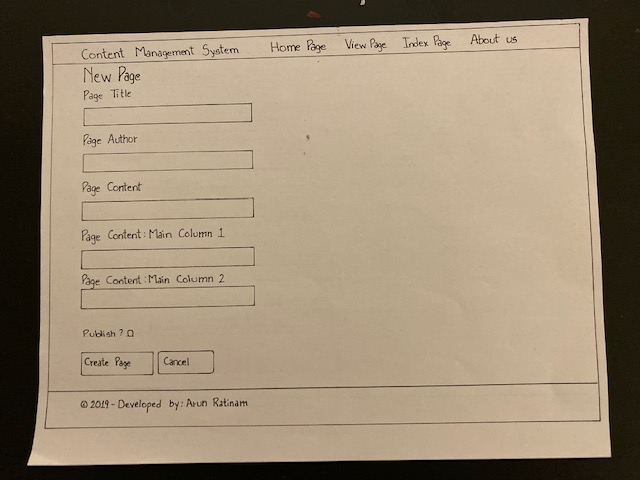 Content Management System Home Page View Page Index Page About us
New Page
Page Title
Page Author
Page Content
Page Content: Main Column 1
Page Content: Main Column 2
Publish?
Create Page Cancel
© 2019 - Developed by: Arun Ratinam